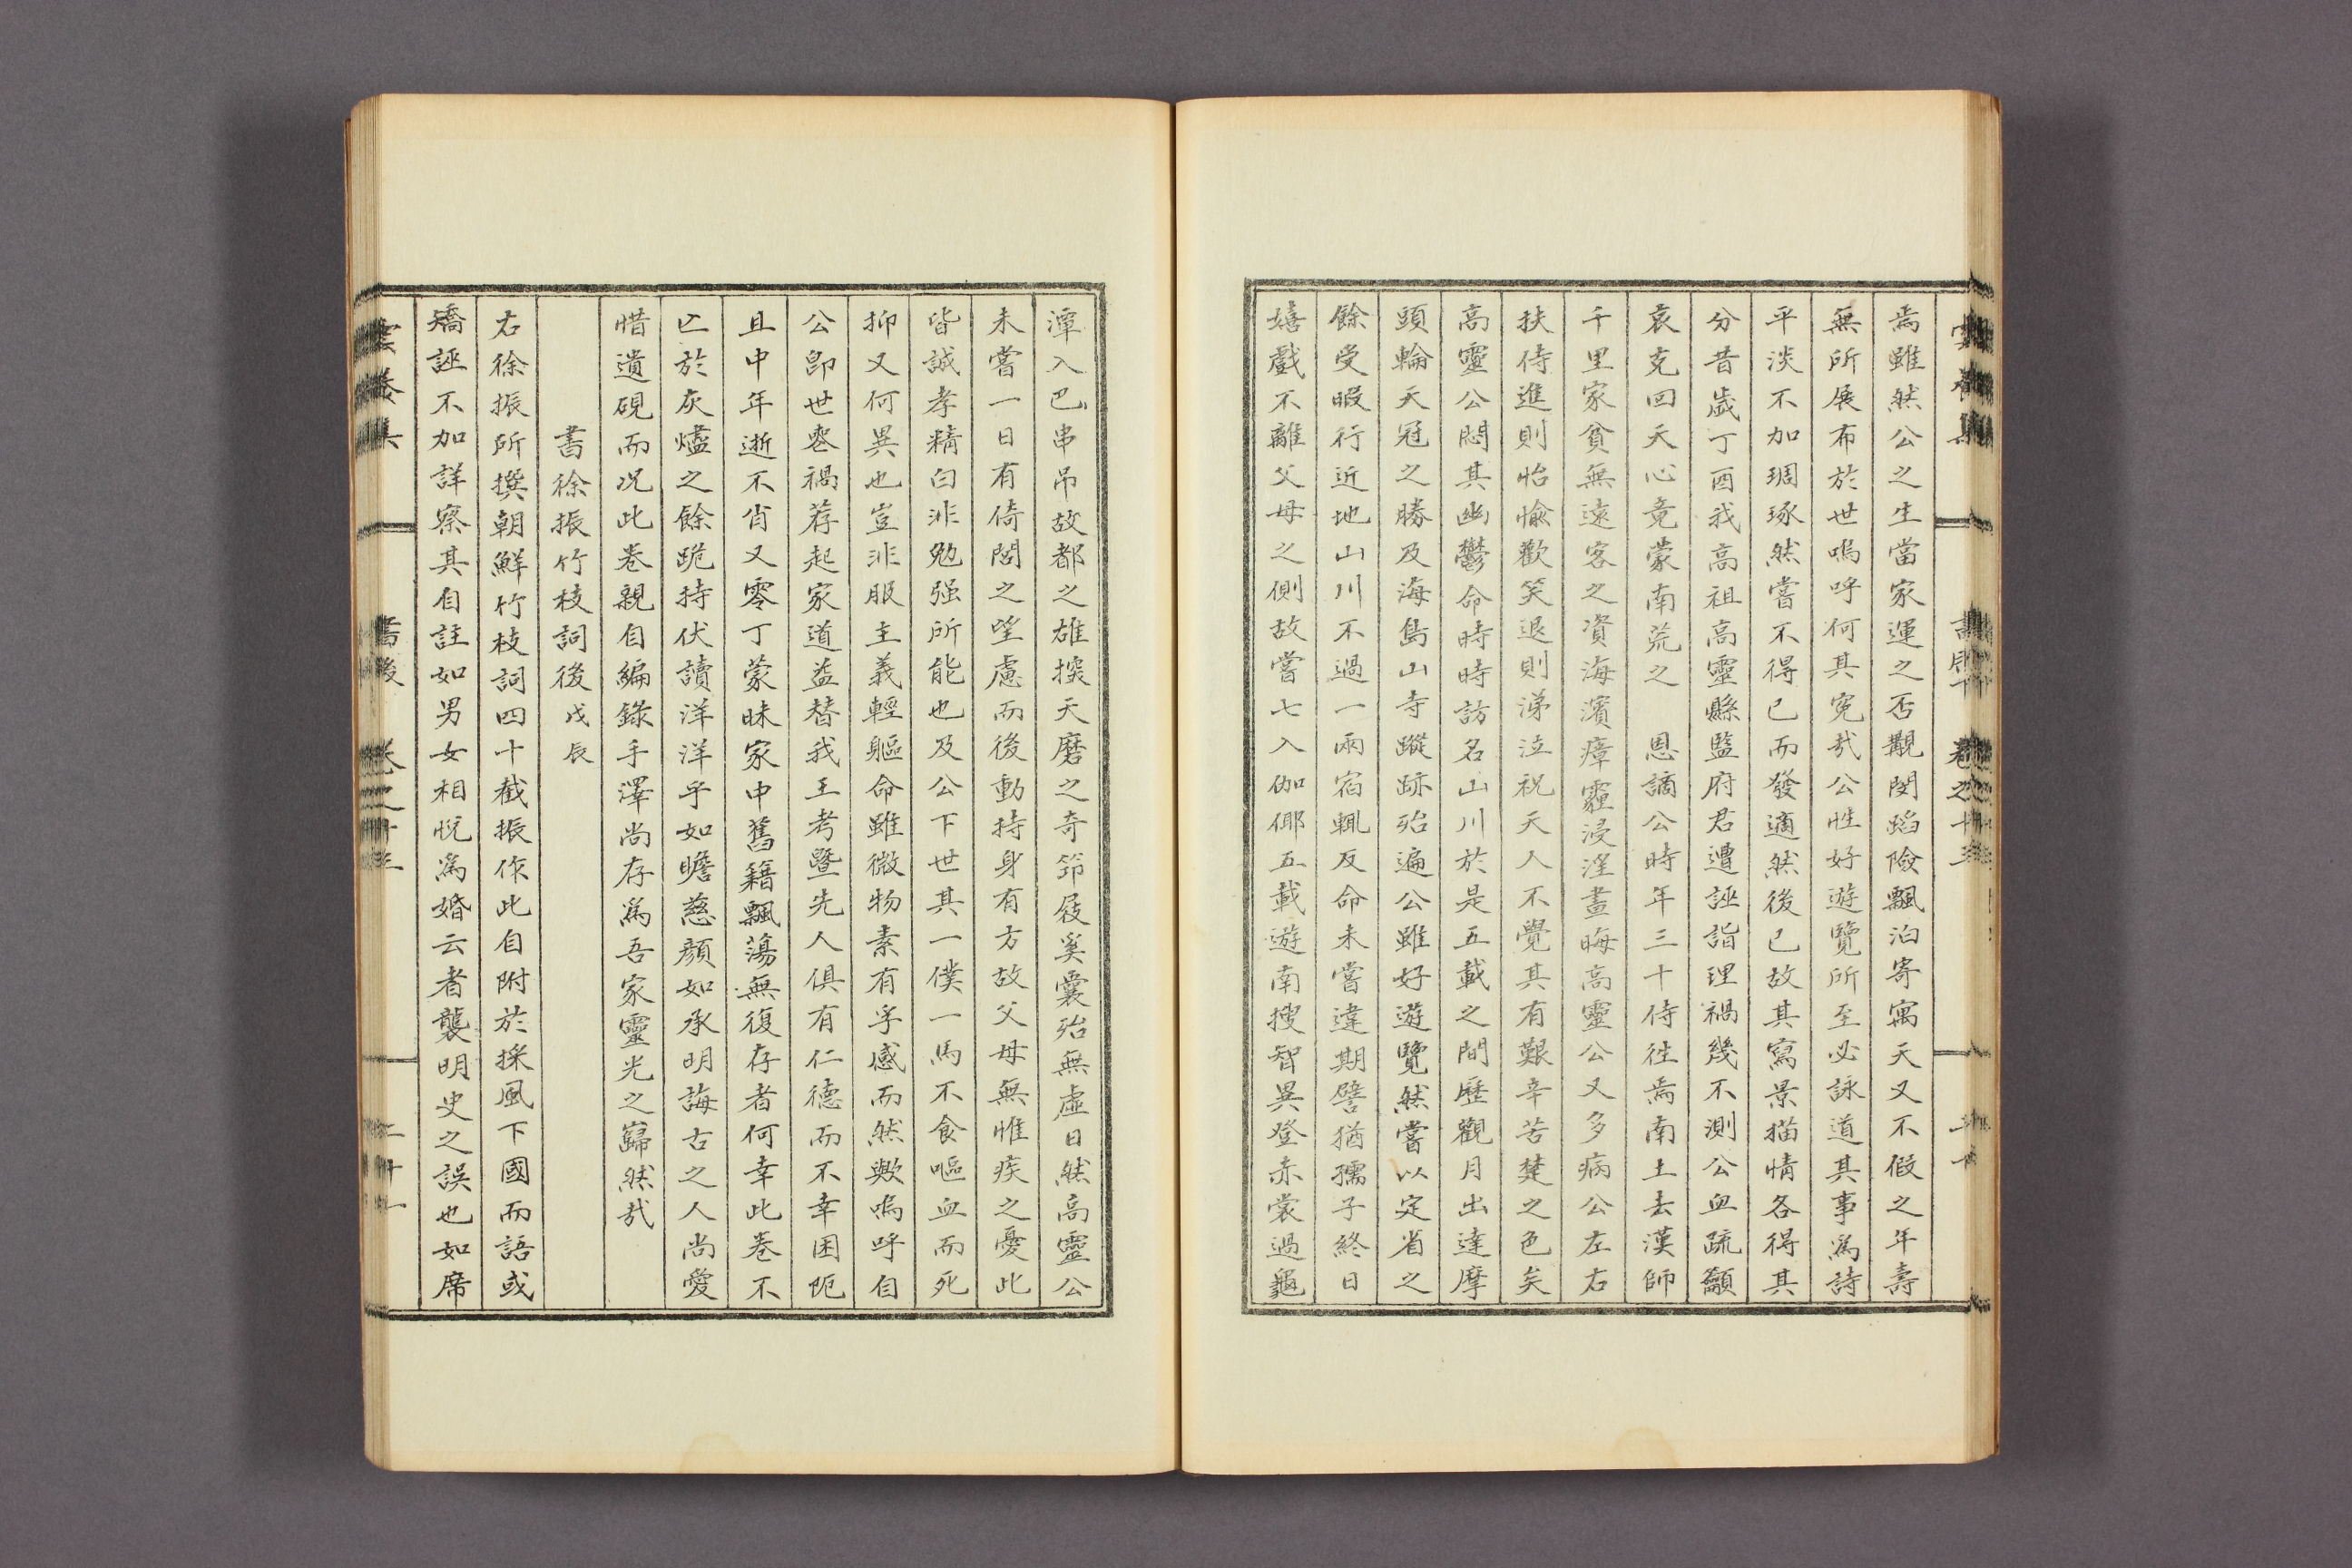 焉雖然公之生當家運之否覯閔蹈險飄泊寄寓天又不假之年壽
無所展布於世嗚呼何其寃㢤公性好遊覽所至必詠道其事爲詩
平淡不加琱琢然嘗不得已而發適然後已故其寫景描情各得其
分昔歲丁酉我高祖高靈縣監府君遭誣詣理禍幾不測公血疏籲
哀克回天心竟蒙南荒之 恩謫公時年三十侍徃焉南土去漢師
千里家貧無遠客之資海濱瘴霾浸淫晝晦高靈公又多病公左右
扶侍進則怡愉歡笑退則涕泣祝天人不覺其有艱辛苦楚之色矣
高靈公悶其幽鬱命時時訪名山川於是五載之間歷觀月出達摩
頭輪天冠之勝及海島山寺蹤跡殆遍公雖好遊覽然嘗以定省之
餘受暇行近地山川不過一兩宿輒反命未嘗違期譬猶孺子終日
嬉戲不離父母之側故嘗七入伽倻五載遊南搜智異登赤裳過龜
潭入巴串吊故都之雄探天磨之奇笻屐奚囊殆無虛日然高靈公
未嘗一日有倚閭之望慮而後動持身有方故父母無惟疾之憂此
皆誠孝精白非勉强所能也及公下世其一僕一馬不食嘔血而死
抑又何異也豈非服主義輕軀命雖微物素有孚感而然歟嗚呼自
公卽世喪禍荐起家道益替我王考曁先人俱有仁德而不幸困阨
且中年逝不肖又零丁蒙昧家中舊籍飄蕩無復存者何幸此卷不
亡於灰燼之餘跪持伏讀洋洋乎如瞻慈顔如承明誨古之人尙愛
惜遺硯而况此卷親自編錄手澤尙存爲吾家靈光之巋然㢤
書徐振竹枝詞後戊辰
右徐振所撰朝鮮竹枝詞四十截振作此自附於採風下國而語或
矯誣不加詳察其自註如男女相悅爲婚云者襲明史之誤也如席